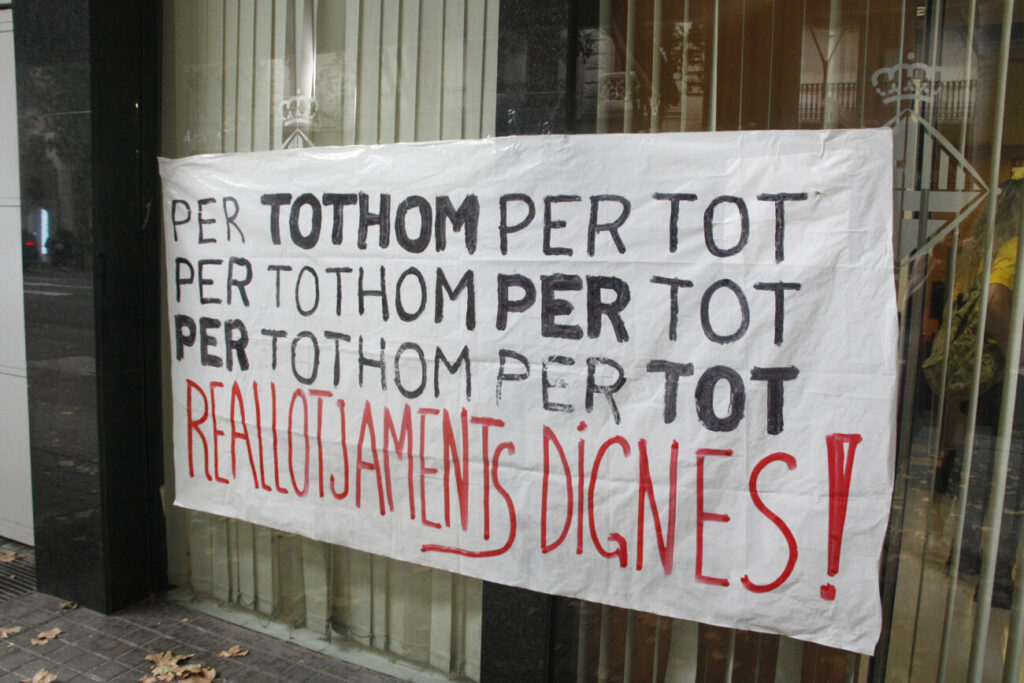 PER TOTHOM PER TOT
PER TOTHOM PER TOT
PER TOTHOM PER TOT
REALLOTJAMENTS DiGNES!